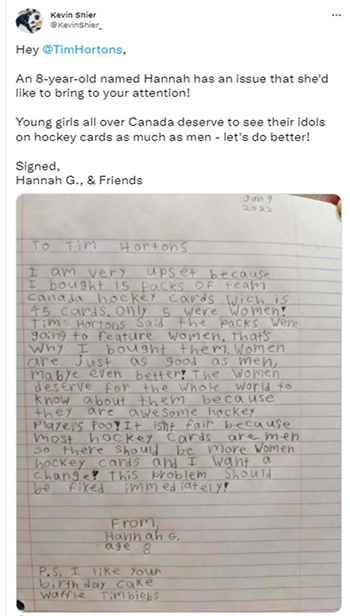 Kevin Shier
@KevinShier_
Hey @TimHortons,
An 8-year-old named Hannah has an issue that she'd
like to bring to your attention!
Young girls all over Canada deserve to see their idols
on hockey cards as much as men - let's do better!
Signed,
Hannah G., & Friends
Jan 9
2022
To Tim Hortons
I am very upset because
I bought 15 packs of team
canada hockey cards wich is
45 cards. Only 5 were women!
Tim Hortons said the packs were
going to feature women, thats
why I bought them. Women
are just as good as men,
mabye even better! The women
deserve for the whole world to
know about them because
they are awesome hockey
players too! It isnt fair because
most hockey cards are men
so there should be more women
hockey cards and I want a
change! This problem should
be fixed immediately!
From,
Hannah G.
age 8
P.S. I like your
birthday cake
waffle Timbiebs